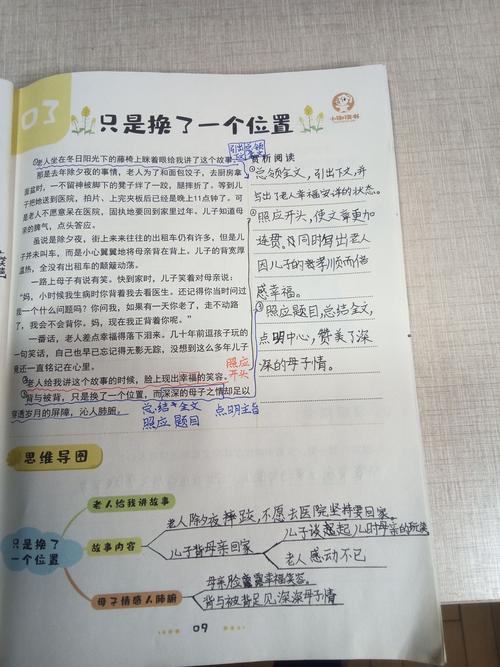 03
只是换了一个位置
小咖读书
①老人坐在冬日阳光下的藤椅上眯着眼给我讲了这个故事。
引出总领
那是去年除夕夜的事情,老人为了和面包饺子,去厨房拿
面盆时,一不留神被脚下的凳子绊了一跤,腿摔折了。等到儿
子把她送到医院,拍片、上完夹板后已经是晚上11点钟了。可
是老人不愿意呆在医院,固执地要回到家里过年。儿子知道母
亲的脾气,点头答应。
虽说是除夕夜,街上来来往往的出租车仍有许多,但是儿
子并未叫车,而是小心翼翼地将母亲背在背上。儿子的背宽厚
温热,全没有出租车的颠簸动荡。
一路上母子有说有笑。快到家时,儿子笑着对母亲说:
“妈,小时候我生病时你背着我去看医生。还记得你当时问过
我一个什么问题吗?你问我,如果有一天你老了,走不动路
了,我会不会背你。妈,现在我正背着你呢。”
一番话,老人差点幸福得落下泪来。几十年前逗孩子玩的
一句笑话,自己也早已忘记得无影无踪,没想到这么多年儿子
竟还一直铭记在心里。
照应
开头
②老人给我讲这个故事的时候,脸上现出幸福的笑容。
③背与被背,只是换了一个位置,而深深的母子之情却足以
穿透岁月的屏障,沁人肺腑。
总结全文 点明主旨
照应题目
赏析阅读
①总领全文,引出下文,并
与出了老人幸福安详的状态。
②照应开头,使文章更加
连贯,及同时写出老人
因儿子的孝孝顺而倍
感幸福。
③照应题目,总结全文,
点明中心,赞美了深
深的母子情。
思维导图
只是换了
一个位置
老人给我讲故事
故事内容
老人除夕夜摔跤,不愿去医院坚持要回家。
儿子背母亲回家
儿子谈起儿时母亲的玩笑
老人感动不已
母子情感人肺腑
母亲脸露幸福笑容。
背与被背足见深深母子情
09